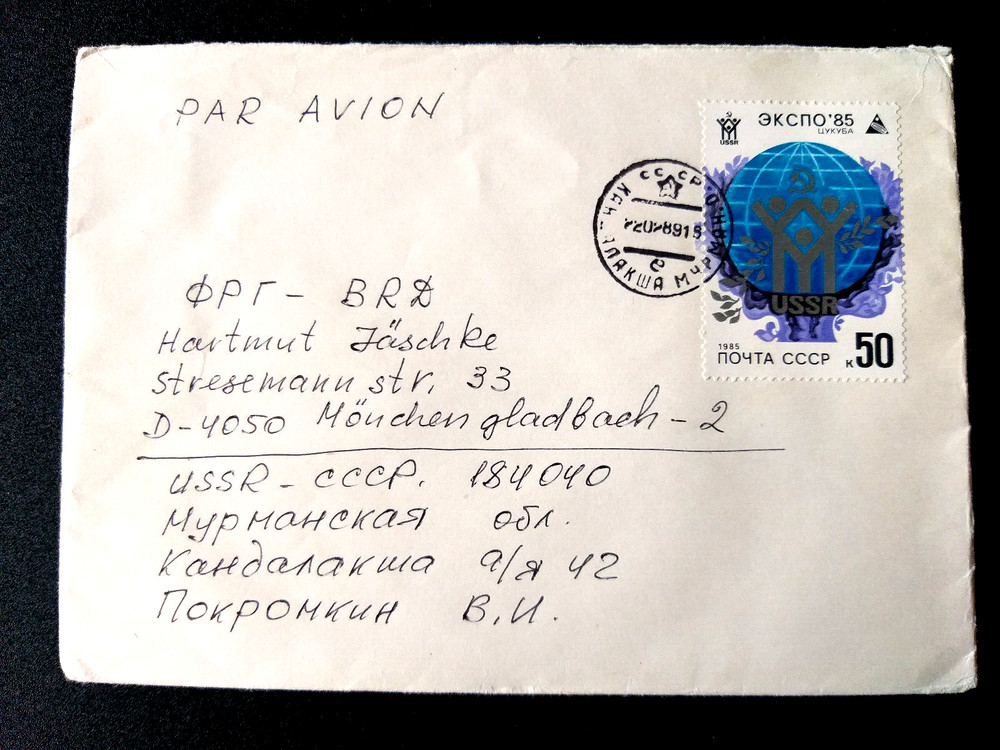 PAR AVION
USSR
ЭКСПО'85
ЦУКУБА
СССР
МУРМАН
USSR
1985
ПОЧТА СССР
к 50
ФРГ - BRD
Hartmut Jäschke
Stresemannstr. 33
D-4050 Mönchengladbach-2
USSR - СССР. 184040
Мурманская обл.
Кандалакша а/я 42
Покромкин В.И.